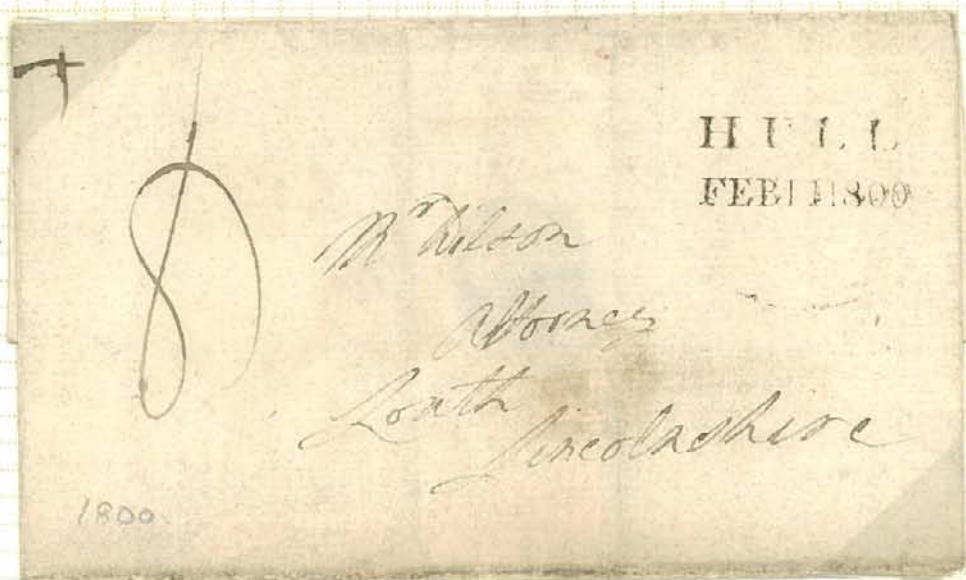 HULL
FEB 11 1800
8
Mr Wilson
Attorney
Louth
Lincolnshire
1800